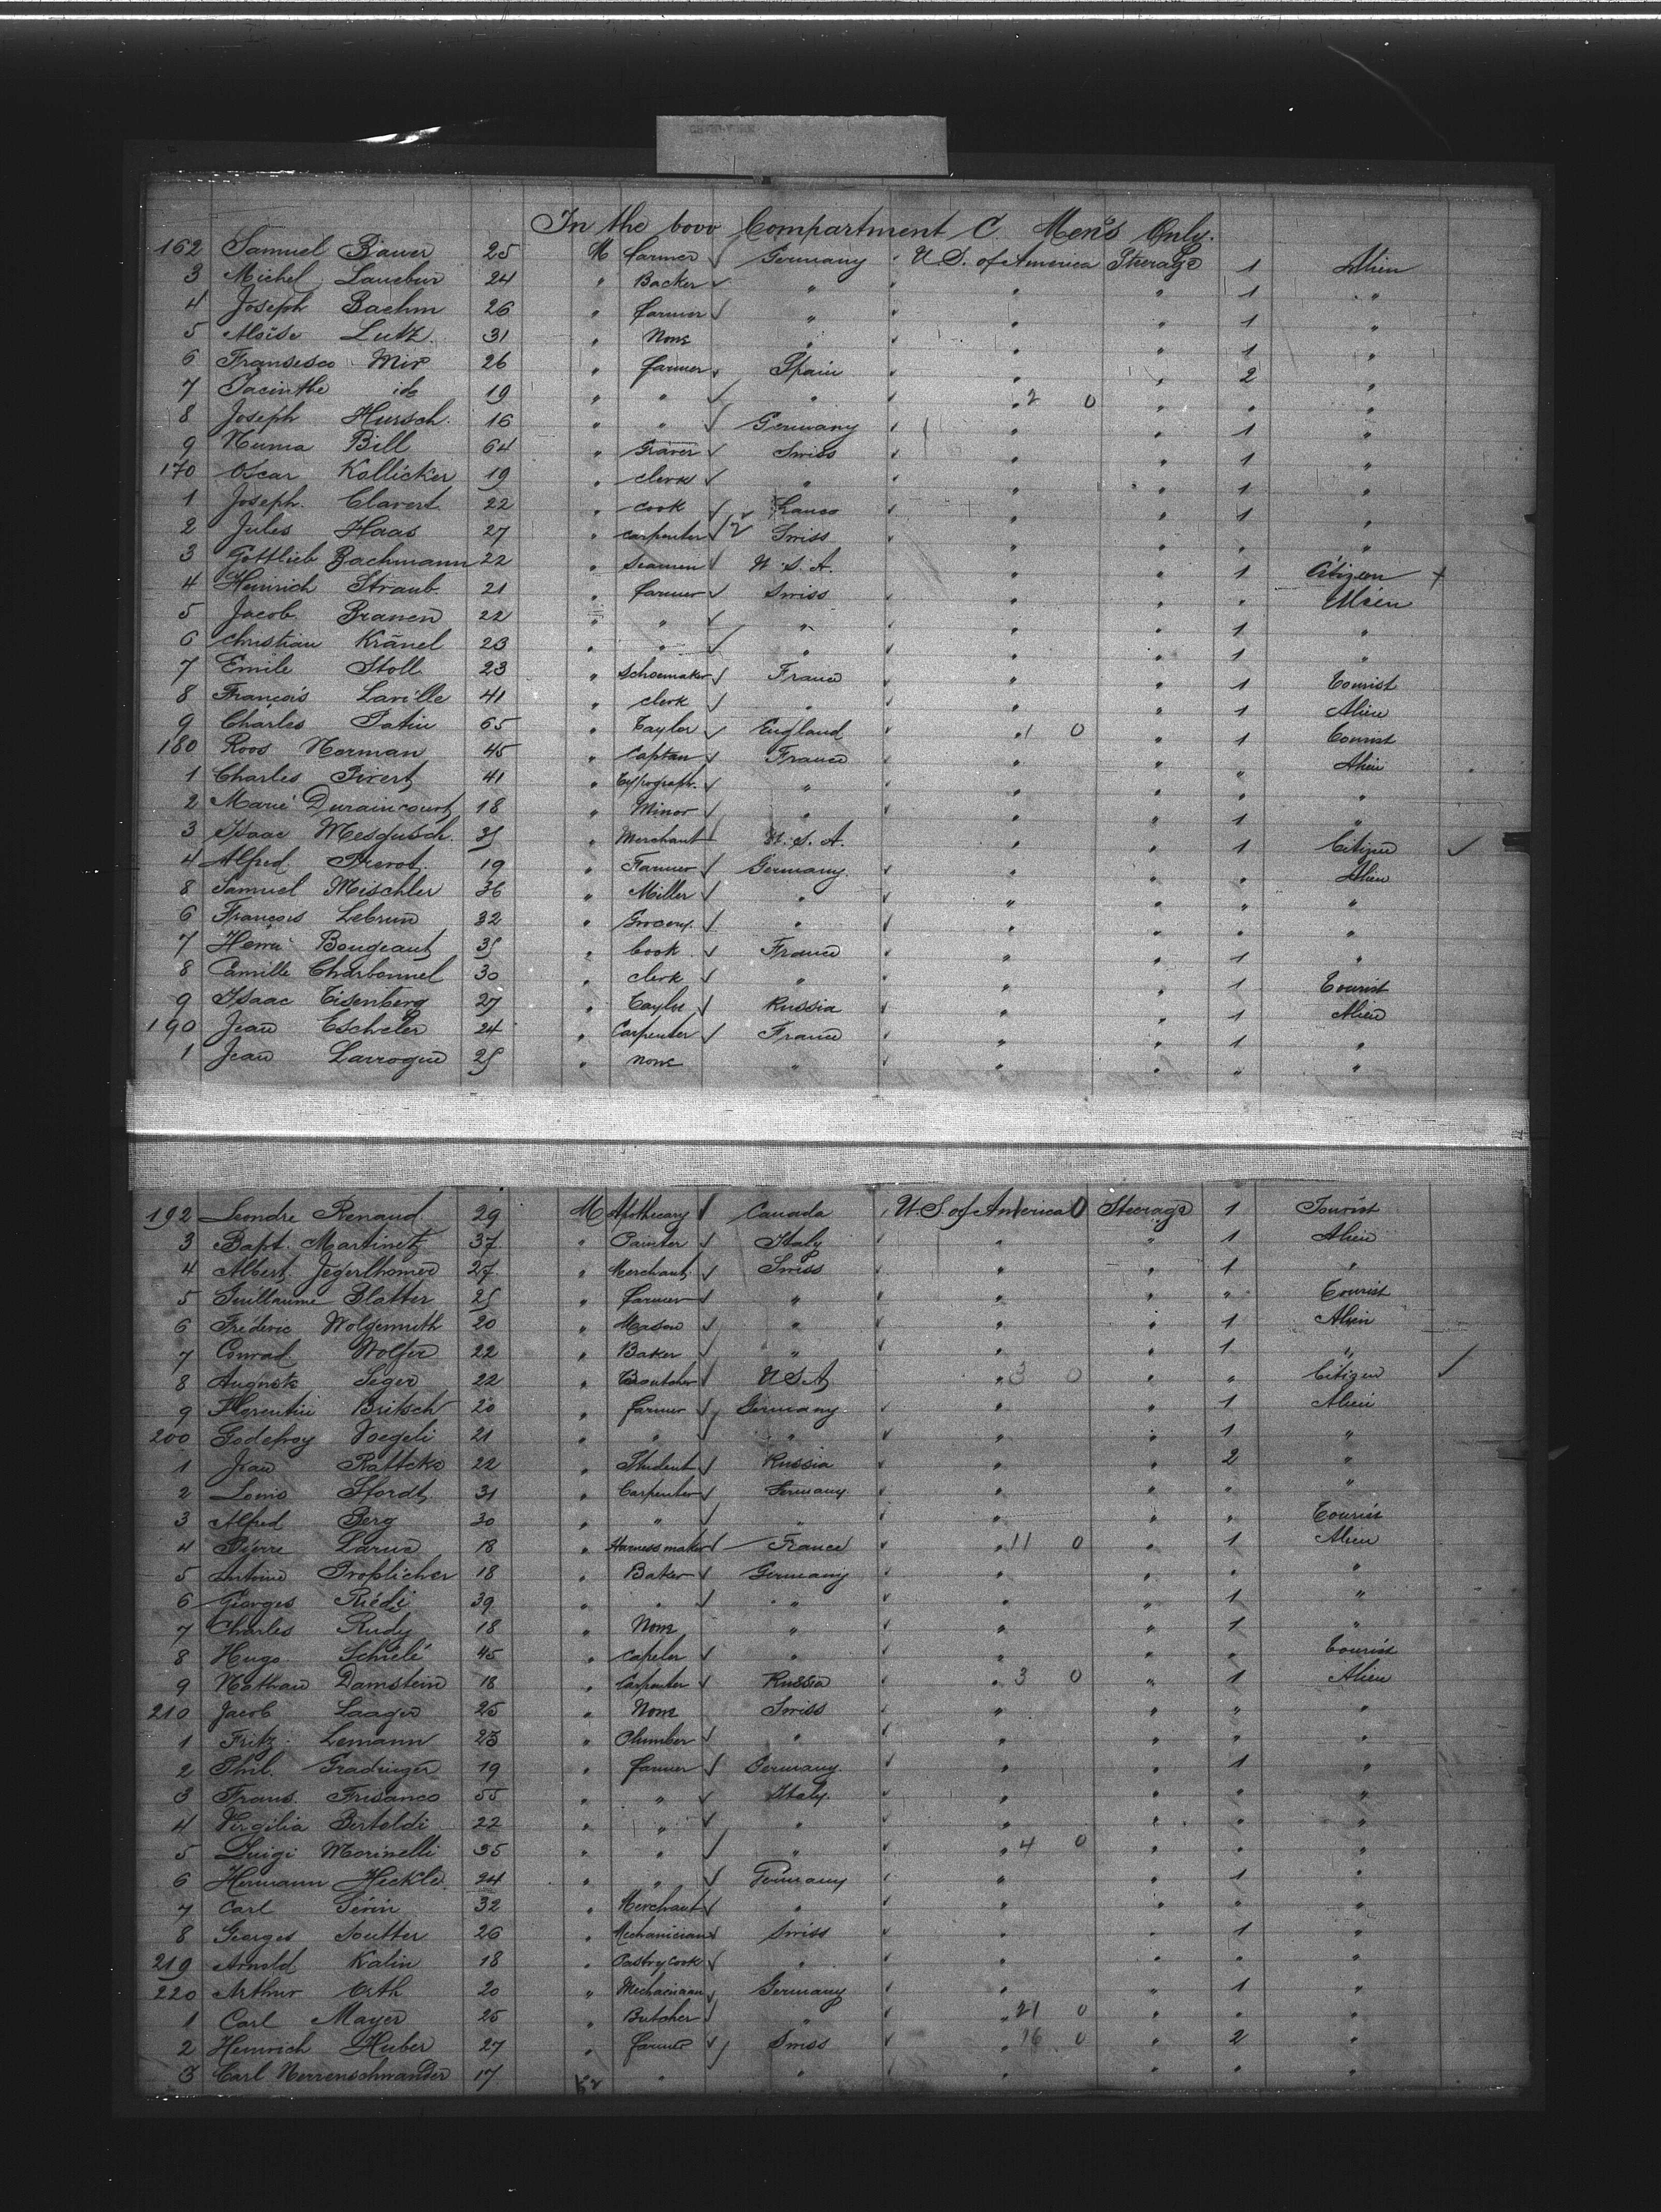 In the bow Compartment C Men's Only.
162 Samuel Bauer 25 M farmer Germany U.S. of America Steerage 1 Alien
3 Michel Laucbur 24 " Backer " " " 1 "
4 Joseph Bachm 26 " farmer " " " 1 "
5 Aloïse Lutz 31 " None " " " 1 "
6 Fransesco Mir 26 " farmer Spain " " 2 "
7 Jacinthe id 19 " " " " 2 0 " " "
8 Joseph Hursch 16 " " Germany " " 1 "
9 Numa Bill 64 " Graver Swiss " " 1 "
170 Oscar Kollicker 19 " clerk " " " 1 "
1 Joseph Clavert 22 " cook France " " 1 "
2 Jules Haas 27 " carpenter 12 Swiss " " " "
3 Gottlieb Bachmann 22 " Seamen U.S.A. " " 1 Citizen +
4 Heinrich Straub 21 " farmer Swiss " " " Alien
5 Jacob Branen 22 " " " " " 1 "
6 Christian Kränel 23 " " " " " 1 "
7 Emile Stoll 23 " Schoemaker France " " 1 Tourist
8 François Laville 41 " clerk " " " 1 Alien
9 Charles Patin 65 " Taylor England " 1 0 " 1 Tourist
180 Roos Norman 45 " Captan France " " " Alien
1 Charles Pivert 41 " Typograph. " " " " "
2 Marie Duraincourt 18 " Minor " " " 1 "
3 Isaac Mesgusch 35 " Merchant U.S.A. " " 1 Citizen
4 Alfred Prevot 19 " Farmer Germany " " " Alien
8 Samuel Mischler 36 " Miller " " " " "
6 François Lebrun 32 " Grocery " " " " "
7 Henri Bougeant 35 " Cook France " " 1 "
8 Camille Charbonnel 30 " clerk " " " 1 Tourist
9 Isaac Eisenberg 27 " Taylor Russia " " 1 Alien
190 Jean Escheler 24 " Carpenter France " " 1 "
1 Jean Larrogue 25 " none " " " " "
192 Leondre Renaud 29 M Apothecary Canada U.S. of America 1 0 Steerage 1 Tourist
3 Bapt. Martinetz 37 " Painter Italy " " 1 Alien
4 Albert Jegerlhomer 27 " Merchant Swiss " " 1 "
5 Guillaume Blatter 25 " farmer " " " " Tourist
6 Fréderic Wolgemuth 20 " Mason " " " 1 Alien
7 Conrad Wolfer 22 " Baker " " " 1 "
8 Auguste Seger 22 " Boutcher U.S.A " 3 0 " " Citizen
9 Florentin Britsch 20 " farmer Germany " " 1 Alien
200 Godefroy Voegeli 21 " " " " " 1 "
1 Jean 22 " Student Russia " " 2 "
2 Louis Pfordt 31 " Carpenter Germany " " " "
3 Alfred Berg 30 " " " " " " Tourist
4 Pierre Larue 18 " Harness maker France " 11 0 " 1 Alien
5 Antoine Froplicher 18 " Baker Germany " " " "
6 Georges Riédi 39 " " " " " 1 "
7 Charles Rudy 18 " None " " " 1 "
8 Hugo Schielé 45 " capeler " " " " Tourist
9 Nathan Damstein 18 " Carpenter Russia " 3 0 " 1 Alien
210 Jacob Laager 25 " None Swiss " " " "
1 Fritz Lemann 23 " Plumber " " " " "
2 Phil. Gradinger 19 " farmer Germany " " 1 "
3 Frans. Frisanco 55 " " Italy " " " "
4 Virgilia Bertoldi 22 " " " " " " "
5 Luigi Morinelli 35 " " " " 4 0 " " "
6 Hermann Heckle 24 " " Germany " " 1 "
7 Carl Térin 32 " Merchant " " " " "
8 Georges Sutter 26 " Mechanician Swiss " " 1 "
219 Arnold Kalin 18 " Pastry cook " " " " "
220 Arthur Orth 20 " Mechanician Germany " " 1 "
1 Carl Mayer 25 " Butcher " " 21 0 " " "
2 Heinrich Huber 27 " farmer Swiss " 16 0 " 2 "
3 Carl Nerrenschwander 17 " " " " " "
62